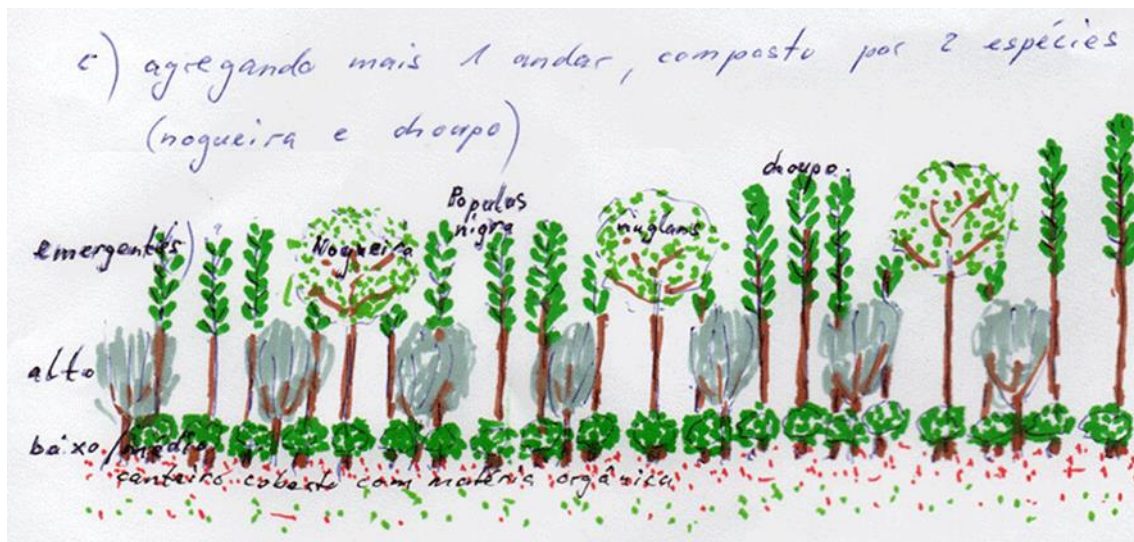 c) agregando mais 1 andar, composto por 2 espécies
(nogueira e choupo)
choupo.
Populus
nigra
emergentes)
Nogueira
nuglans
alto
baixo/médio
canteiro coberto com matéria orgânica